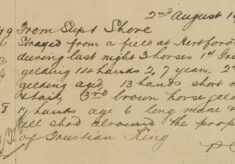 2nd August 1
From Supt Shore
Strayed from a field at Hertford
during last night 3 horses 1st
gelding 14 hands 2, 7 years, 2
gelding aged 13 hands short
tail, 3rd brown horse
hands age 6 long mane &
well shod all round the prop
of Tristian King